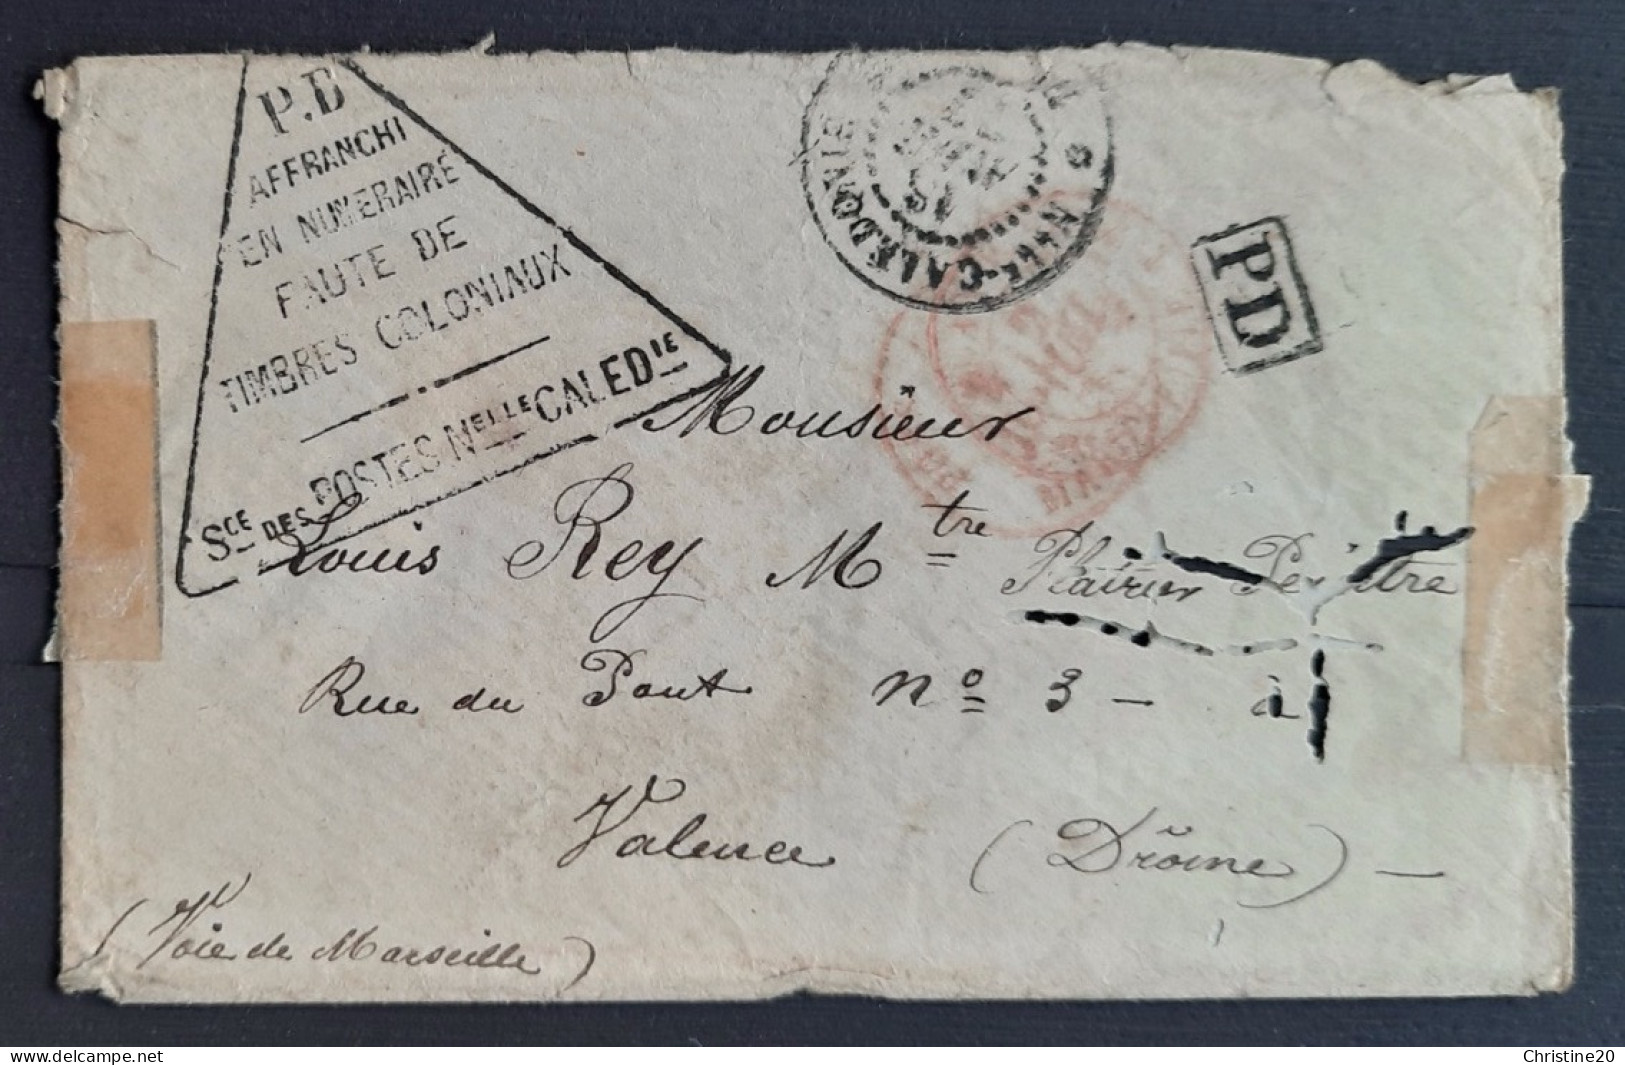 P.D
AFFRANCHI
EN NUMERAIRE
FAUTE DE
TIMBRES COLONIAUX
Sce DES POSTES Nelle CALEDie
Nelle-CALEDONIE
PD
Monsieur
Louis Rey Mtre Plâtrier Peintre
Rue du Pont No 3 - à
Valence (Drôme) -
(Voie de Marseille)
delcampe.net
Christine20